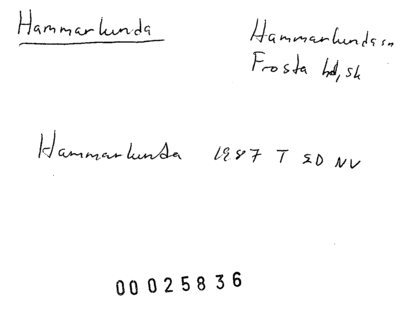 Hammarlunda
Hammarlunda sn
Frosta hd, sk
Hammarlunda 1987 T SD NV
00025836